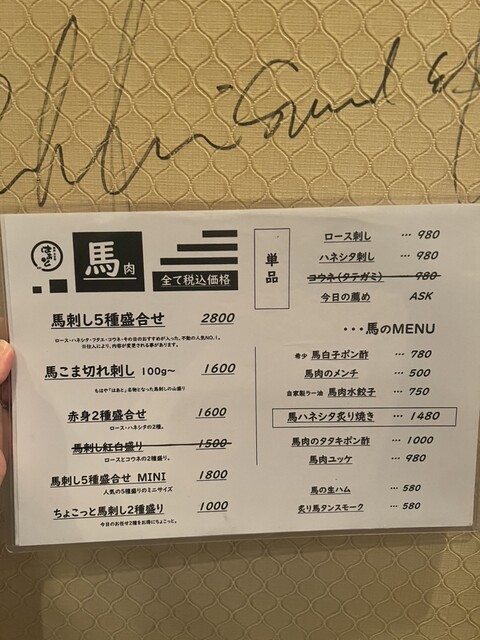 はぁと
馬肉
全て税込価格
馬刺し5種盛合せ 2800
ロース・ハネシタ・フタエ・コウネ・その日のおすすめが入った、不動の人気NO.1。
※仕入により、内容が変更される事があります。
馬こま切れ刺し 100g〜 1600
もはや「はあと」名物となった馬刺しの山盛り
赤身2種盛合せ 1600
ロース・ハネシタの2種。
馬刺し紅白盛り 1500
ロースとコウネの2種盛り。
馬刺し5種盛合せ MINI 1800
人気の5種盛りのミニサイズ
ちょこっと馬刺し2種盛り 1000
今日のお任せ2種をお得にちょこっと。
単品
ロース刺し … 980
ハネシタ刺し … 980
コウネ(タテガミ) 980
今日の薦め ASK
…馬のMENU
希少 馬白子ポン酢 … 780
馬肉のメンチ … 500
自家製ラー油 馬肉水餃子 … 750
馬ハネシタ炙り焼き … 1480
馬肉のタタキポン酢 … 1000
馬肉ユッケ … 980
馬の生ハム … 580
炙り馬タンスモーク … 580